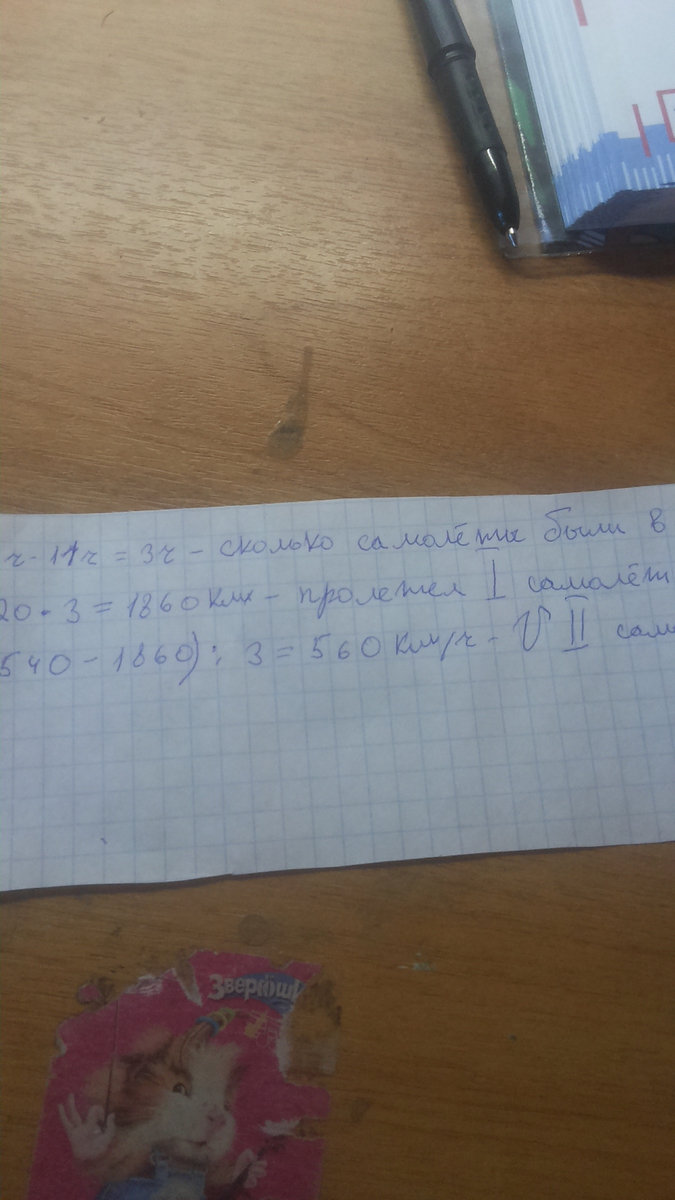 ч - 11ч = 3ч - сколько самолёты были в
20 • 3 = 1860 км - пролетел I самолёт
540 - 1860) : 3 = 560 км/ч - V II само
Зверюшк